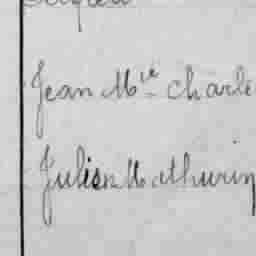 Jean Mie Charle
Julien Mathurin